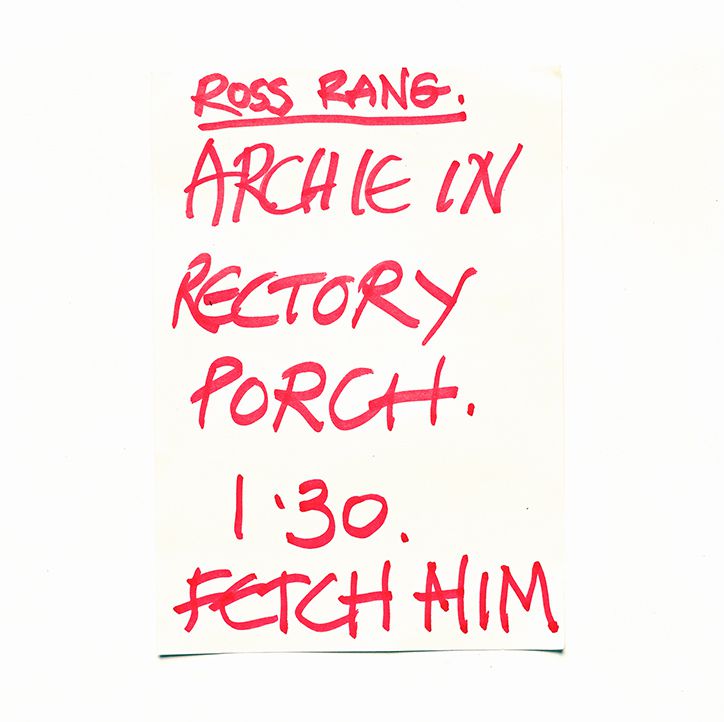 ROSS RANG.
ARCHIE IN
RECTORY
PORCH.
1·30.
FETCH HIM